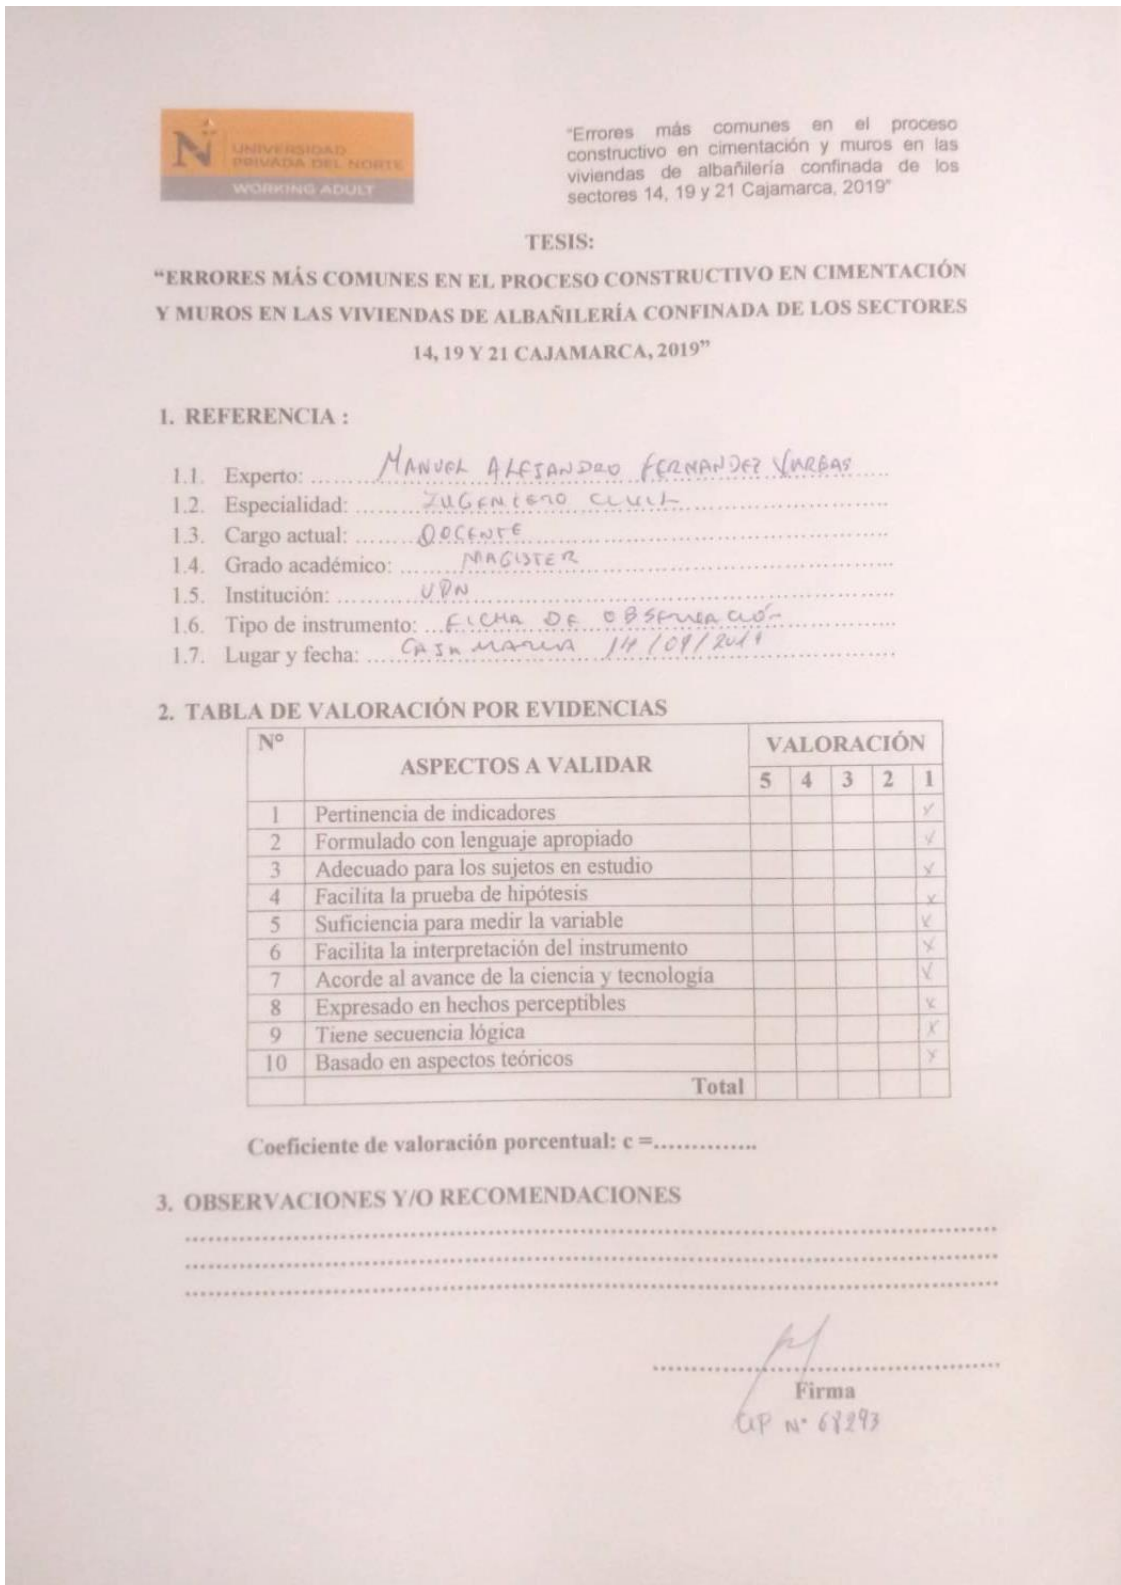 N
UNIVERSIDAD
PRIVADA DEL NORTE
WORKING ADULT
"Errores más comunes en el proceso
constructivo en cimentación y muros en las
viviendas de albañilería confinada de los
sectores 14, 19 y 21 Cajamarca, 2019"
TESIS:
"ERRORES MÁS COMUNES EN EL PROCESO CONSTRUCTIVO EN CIMENTACIÓN
Y MUROS EN LAS VIVIENDAS DE ALBAÑILERÍA CONFINADA DE LOS SECTORES
14, 19 Y 21 CAJAMARCA, 2019"
1. REFERENCIA :
1.1. Experto: MANUEL ALEJANDRO FERNANDEZ VARGAS
1.2. Especialidad: INGENIERO CIVIL
1.3. Cargo actual: DOCENTE
1.4. Grado académico: MAGISTER
1.5. Institución: UPN
1.6. Tipo de instrumento: FICHA DE OBSERVACIÓN
1.7. Lugar y fecha: CAJAMARCA 14/09/2019
2. TABLA DE VALORACIÓN POR EVIDENCIAS
N° ASPECTOS A VALIDAR VALORACIÓN
5 4 3 2 1
1 Pertinencia de indicadores x
2 Formulado con lenguaje apropiado x
3 Adecuado para los sujetos en estudio x
4 Facilita la prueba de hipótesis x
5 Suficiencia para medir la variable x
6 Facilita la interpretación del instrumento x
7 Acorde al avance de la ciencia y tecnología x
8 Expresado en hechos perceptibles x
9 Tiene secuencia lógica x
10 Basado en aspectos teóricos x
Total
Coeficiente de valoración porcentual: c =..............
3. OBSERVACIONES Y/O RECOMENDACIONES
Firma
CIP N° 68293